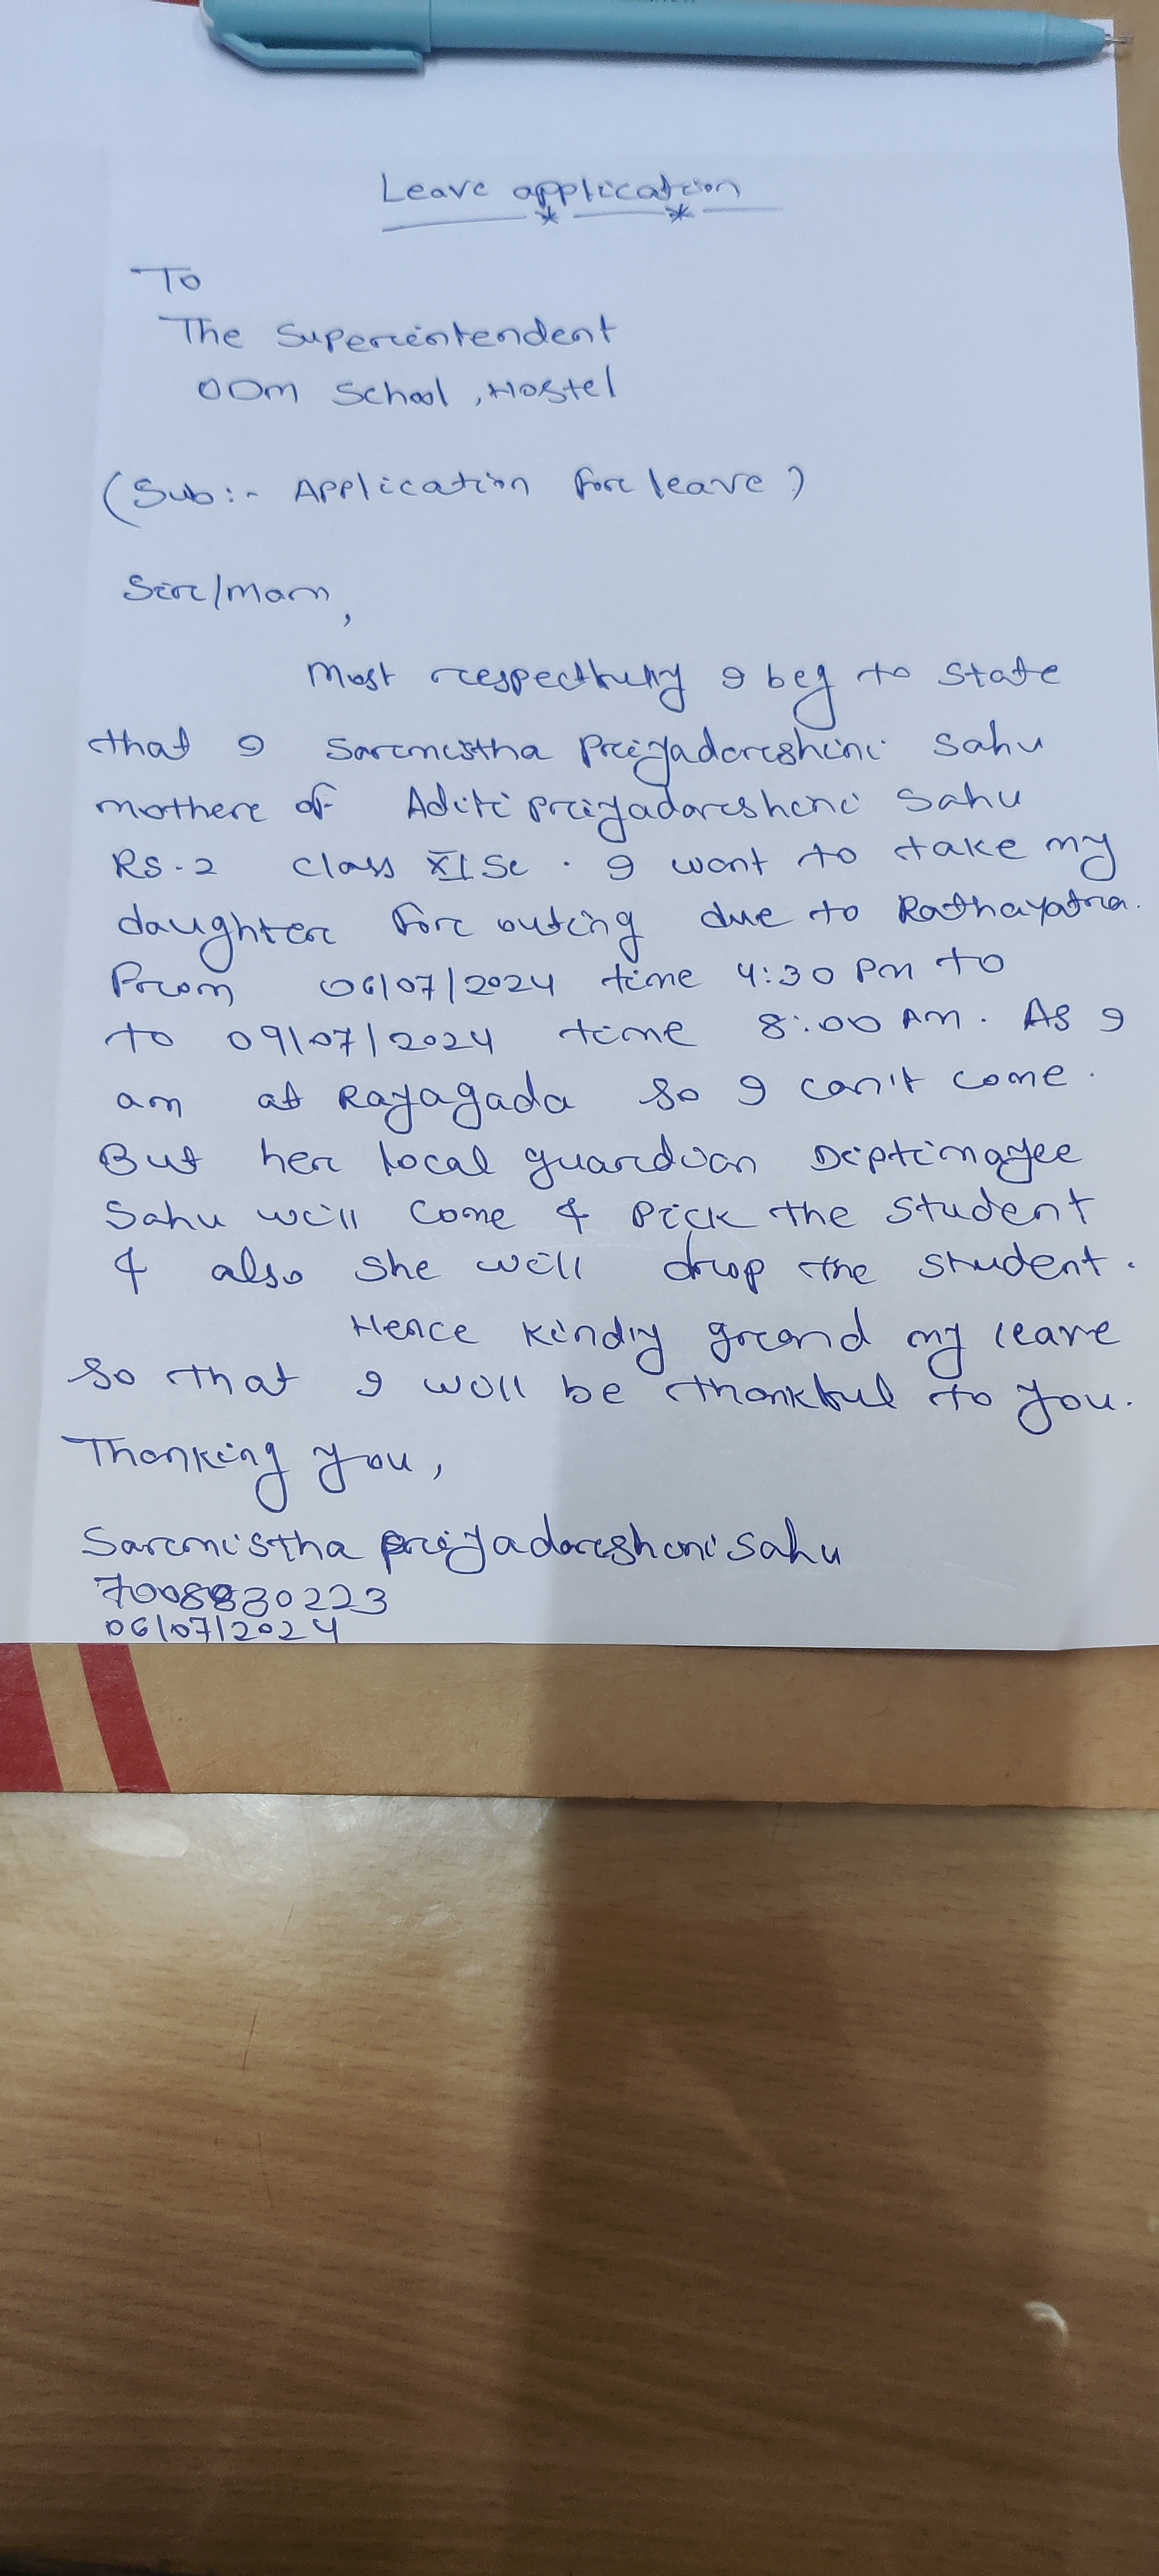 Leave application
To
The Superintendent
ODM School, Hostel
(Sub:- Application for leave)
Sir/Mam,
Most respectfully I beg to state
that I Sarmistha Priyadarshini Sahu
mother of Aditi priyadarshini Sahu
RS-2 Class XI Sc. I want to take my
daughter for outing due to Rathayatra.
From 06/07/2024 time 4:30 PM to
to 09/07/2024 time 8:00 AM. As I
am at Rayagada so I can't come.
But her local guardian Diptimayee
Sahu will come & pick the student
& also she will drop the student.
Hence kindly grand my leave
so that I will be thankful to you.
Thanking you,
Sarmistha priyadarshini Sahu
06/07/2024